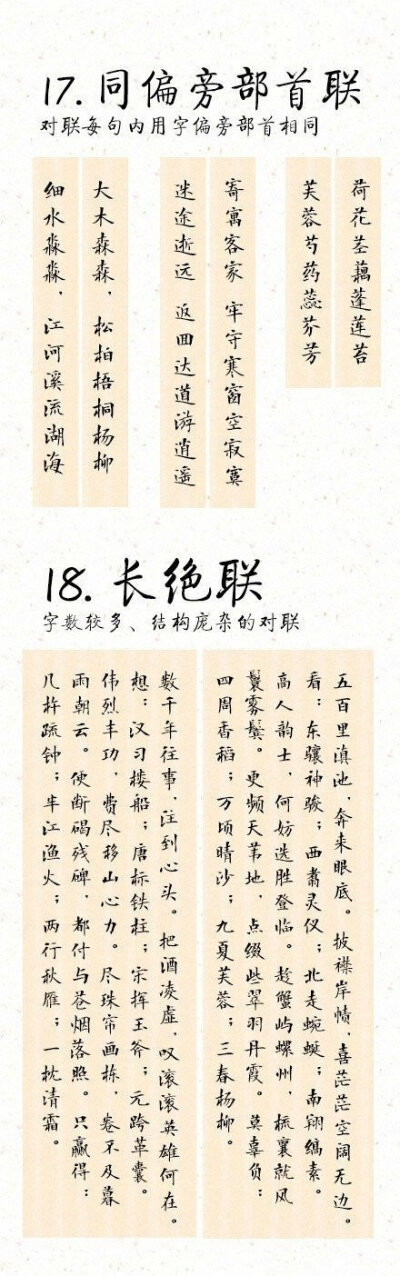 17. 同偏旁部首联
对联每句内用字偏旁部首相同
荷花茎藕蓬莲苔
芙蓉芍药蕊芬芳
寄寓客家 牢守寒窗空寂寞
迷途逝远 返回达道游逍遥
大木森森，松柏梧桐杨柳
细水淼淼，江河溪流湖海
18. 长绝联
字数较多、结构庞杂的对联
五百里滇池，奔来眼底。披襟岸帻，喜茫茫空阔无边。
看：东骧神骏；西翥灵仪；北走蜿蜒；南翔缟素。
高人韵士，何妨选胜登临。趁蟹屿螺州，梳裹就风
鬟雾鬓。更频天苇地，点缀些翠羽丹霞。莫辜负：
四周香稻；万顷晴沙；九夏芙蓉；三春杨柳。
数千年往事，注到心头。把酒凌虚，叹滚滚英雄何在。
想：汉习楼船；唐标铁柱；宋挥玉斧；元跨革囊。
伟烈丰功，费尽移山心力。尽珠帘画栋，卷不及暮
雨朝云。便断碣残碑，都付与苍烟落照。只赢得：
几杵疏钟；半江渔火；两行秋雁；一枕清霜。